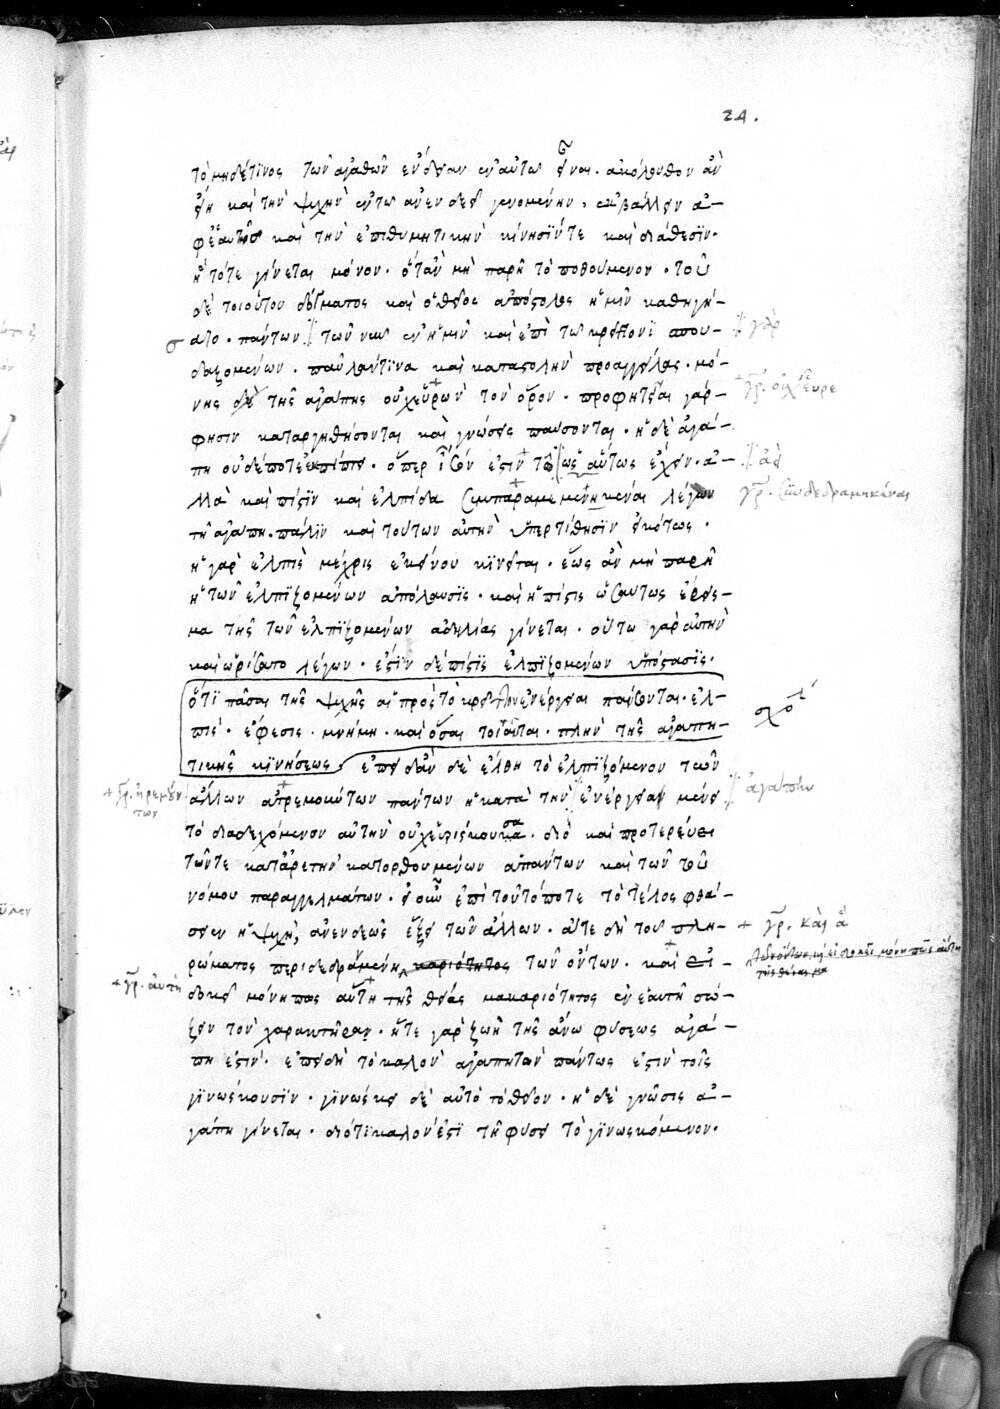 24.
τὸ μηδέτινος τῶν ἀγαθῶν ἐνδεᾶν ἐν αὐτῶ εἶναι. ἀκόλουθον ἂν
εἴη καὶ τὴν ψυχὴν ἐν τῶ ἀνενδεεῖ γενομένην, ἐκβάλλειν ἀ-
φ' ἑαυτῆς καὶ τὴν ἐπιθυμητικὴν κίνησίν τε καὶ διάθεσιν.
ἣ τότε γίνεται μόνον. ὅταν μὴ παρῆ τὸ ποθούμενον. τοῦ
δὲ τοιούτου δόγματος καὶ ὁ θεῖος ἀπόστολος ἡμῖν καθηγή-
σατο. πάντων τῶν νῦν ἐν ἡμῖν καὶ ἐπὶ τῶ κρείττονι σπου-
δαζομένων. παῦλαν τινα καὶ καταστολὴν προαγγείλας. μό-
νης δὲ τῆς ἀγάπης οὐχ εὑρὼν τὸν ὅρον. προφητεῖαι γάρ-
φησιν καταργηθήσονται καὶ γνώσεις παύσονται. ἡ δὲ ἀγά-
πη οὐδέποτε ἐκπίπτει. ὅπερ ἴσον ἐστὶν τῶ ὡσαύτως ἔχειν. ἀ-
λλὰ καὶ πίστιν καὶ ἐλπίδα συμπαραμεμενηκέναι λέγων
τῆ ἀγάπη. πάλιν καὶ τούτων αὐτὴν ὑπερτίθησιν εἰκότως.
ἡ γὰρ ἐλπὶς μέχρις ἐκείνου κινεῖται. ἕως ἂν μὴ παρῆ
ἡ τῶν ἐλπιζομένων ἀπόλαυσις. καὶ ἡ πίστις ὡσαύτως ἔρεισ-
μα τῆς τῶν ἐλπιζομένων ἀδηλίας γίνεται. οὕτω γὰρ αὐτὴν
καὶ ὡρίσατο λέγων. ἔστιν δὲ πίστις ἐλπιζομένων ὑπόστασις.
ὅτι πᾶσαι τῆς ψυχῆς αἱ πρὸς τὸ κρεῖττον ἐνέργειαι παύονται. ἐλ-
πίς. ἔφεσις. μνήμη. καὶ ὅσαι τοιαῦται. πλὴν τῆς ἀγαπη-
τικῆς κινήσεως ἐπειδὰν δὲ ἔλθη τὸ ἐλπιζόμενον τῶν
ἄλλων ἀτρεμούντων πάντων ἡ κατὰ τὴν ἐνέργειαν μένει
τὸ διαδεχόμενον αὐτὴν οὐχ εὑρίσκουσα. διὸ καὶ προτερεύει
τῶν τε κατ' ἀρετὴν κατορθουμένων ἁπάντων καὶ τῶν τοῦ
νόμου παραγγελμάτων. εἰ οὖν ἐπὶ τοῦτό ποτε τὸ τέλος φθά-
σειεν ἡ ψυχὴ, ἀνενδεῶς ἕξει τῶν ἄλλων. ἅτε δὴ τοῦ πλη-
ρώματος περιδεδραγμένη τῶν ὄντων. καὶ
δοκεῖ μόνη πως αὕτη τῆς θείας μακαριότητος ἐν ἑαυτῆ σώ-
ζειν τὸν χαρακτῆρα. ἥτε γὰρ ζωὴ τῆς ἄνω φύσεως ἀγά-
πη ἐστίν. ἐπειδὴ τὸ καλὸν ἀγαπητὸν πάντως ἐστὶν τοῖς
γινώσκουσιν. γινώσκει δὲ αὐτὸ τὸ θεῖον. ἡ δὲ γνῶσις ἀ-
γάπη γίνεται. διότι καλόν ἐστι τῆ φύσει τὸ γινωσκόμενον.
γὰρ
+ γρ. οὐχ εὗρε
ἀεὶ
γρ. συνδεδραμηκέναι
σχό
ἀγάπην
+ γρ. ἠρεμούν
των
+ γρ. καὶ ἃ
+ γρ. αὐτὴ